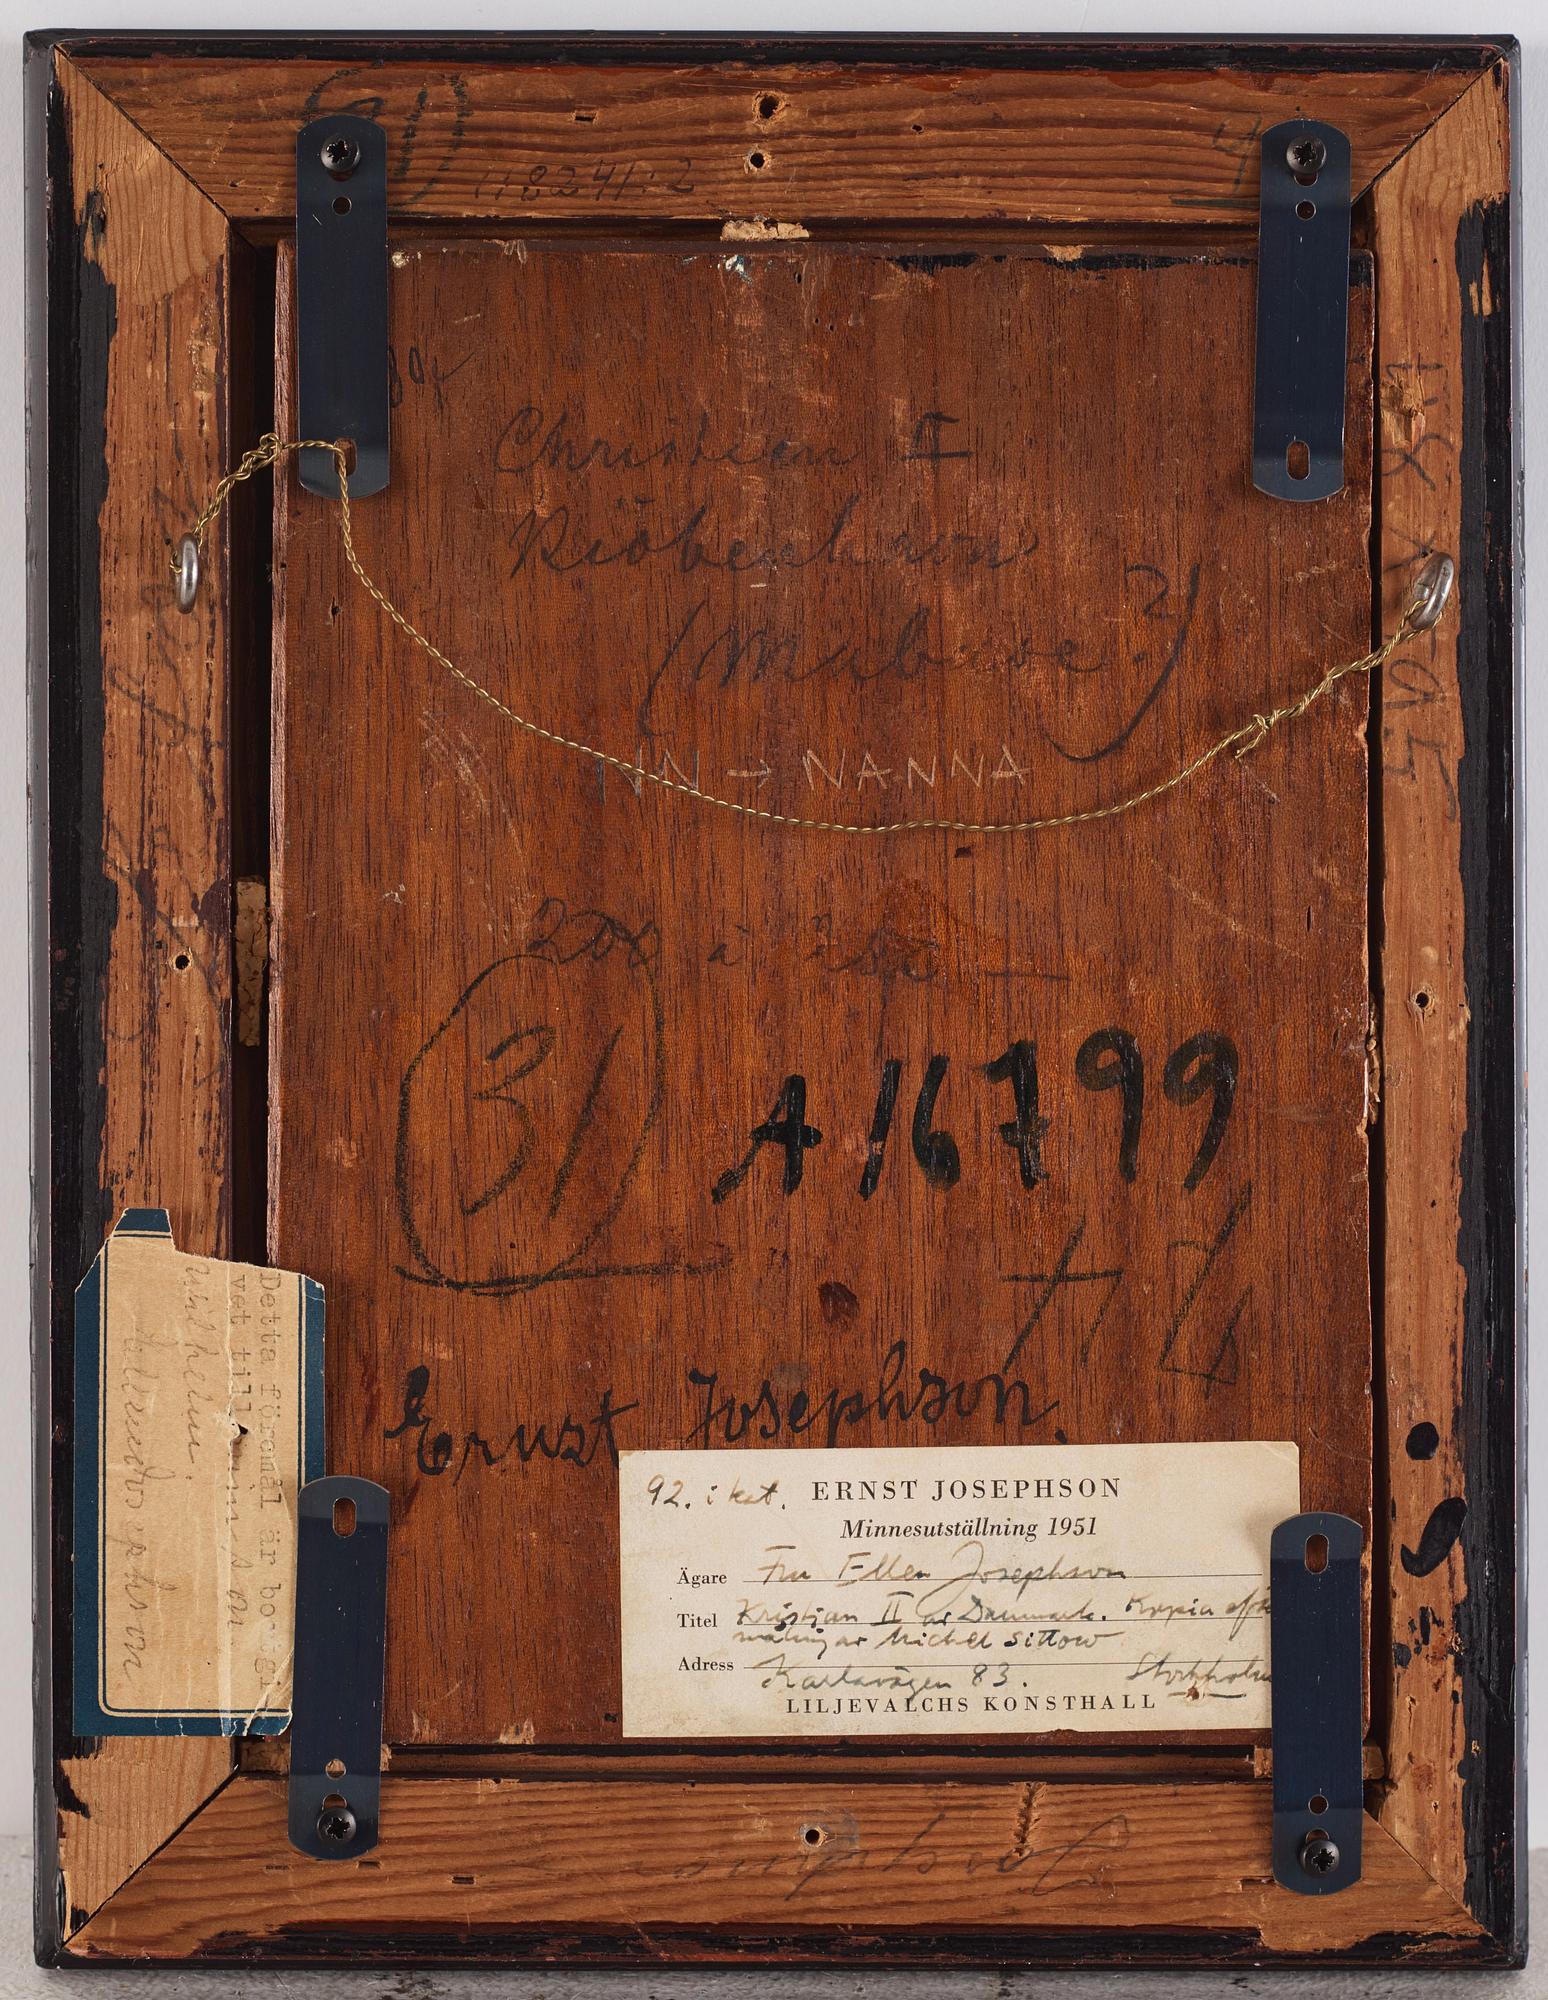 118241:2
Christian II
Kiöbenhavn
(Mabuse?)
NN → NANNA
200 à 250 —
31
A 16799
Ernst Josephson.
92. i kat. ERNST JOSEPHSON
Minnesutställning 1951
Ägare Fru Ellen Josephson
Titel Kristian II av Danmark. Kopia efter
målning av Michel Sittow
Adress Karlavägen 83. Stockholm
LILJEVALCHS KONSTHALL
Detta föremål är bortgi
vet till min son
Wilhelm.
Josephson